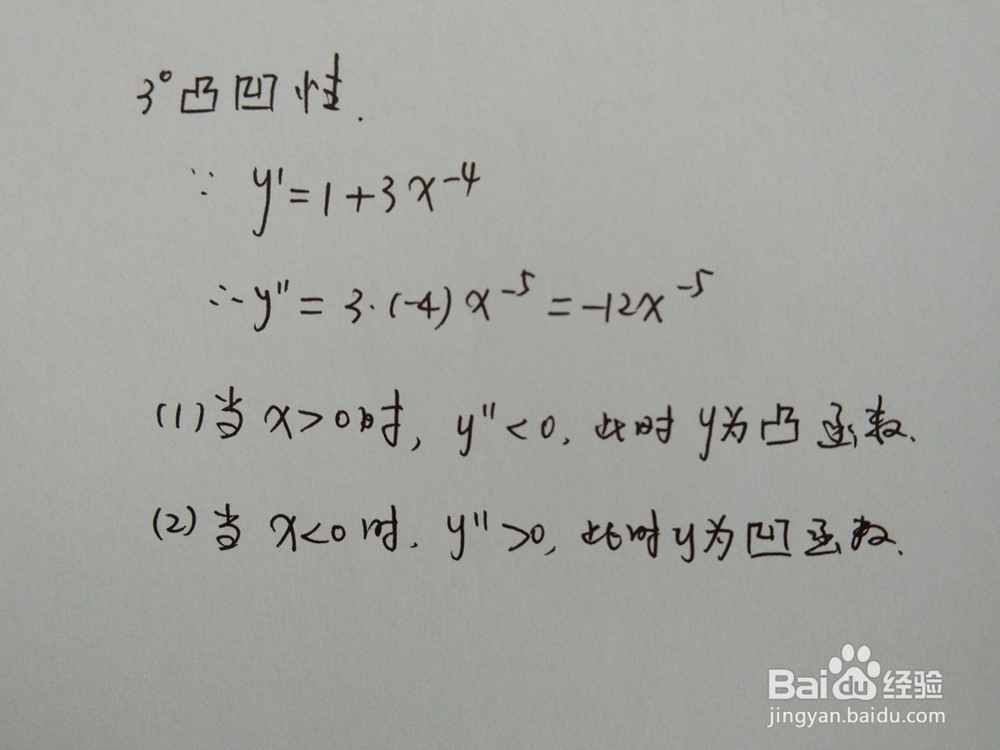 3° 凸凹性.
∵ y' = 1 + 3x⁻⁴
∴ y'' = 3·(-4)x⁻⁵ = -12x⁻⁵
(1) 当 x>0时, y''<0, 此时 y为凸函数.
(2) 当 x<0时, y''>0, 此时 y为凹函数.
Baidu 经验
jingyan.baidu.com